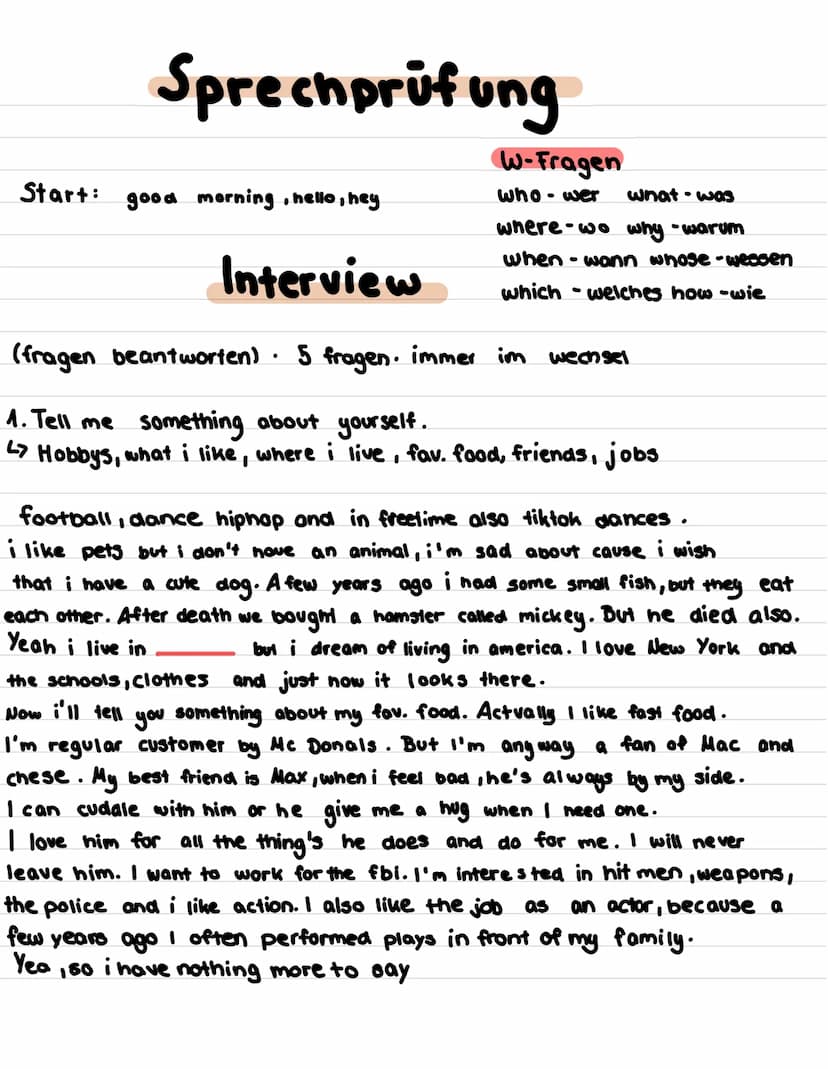 Sprechprüfung
W-Fragen
Start: good morning, hello, hey
who - wer what - was
where - wo why - warum
when - wann whose - wessen
Interview
which - welches how - wie
(fragen beantworten) · 5 fragen. immer im wechsel
1. Tell me something about yourself.
↳ Hobbys, what i like, where i live, fav. food, friends, jobs
football, dance hiphop and in freetime also tiktok dances.
i like pets but i don't have an animal, i'm sad about cause i wish
that i have a cute dog. A few years ago i had some small fish, but they eat
each other. After death we bought a hamster called mickey. But he died also.
Yeah i live in ______ but i dream of living in america. I love New York and
the schools, clothes and just now it looks there.
Now i'll tell you something about my fav. food. Actually I like fast food.
I'm regular customer by Mc Donals. But I'm anyway a fan of Mac and
chese. My best friend is Max, when i feel bad, he's always by my side.
I can cuddle with him or he give me a hug when I need one.
I love him for all the thing's he does and do for me. I will never
leave him. I want to work for the fbi. I'm interested in hit men, weapons,
the police and i like action. I also like the job as an actor, because a
few years ago I often performed plays in front of my family.
Yea, so i have nothing more to say